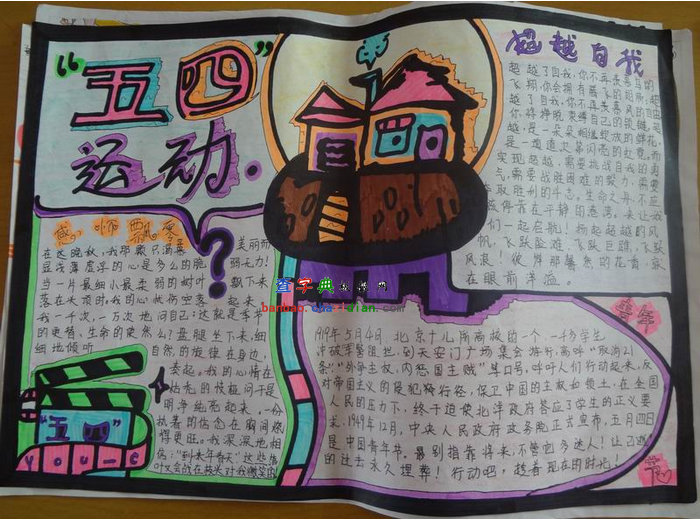 “五四”
运动.
超越自我
超越了自我,你不再羡慕鸟的
飞翔,你会拥有腾飞的翅膀,超
越了自我,你不再羡慕风的自由,
你将挣脱束缚自己的锁链。超
越,是一朵朵相继绽放的鲜花,
是一道道次第闪亮的彩霞。而
实现超越,需要挑战自我的勇
气,需要战胜困难的毅力,需要
争取胜利的斗志。生命之舟不应
停靠在平静的港湾,来让我
们一起启航!扬起超越的风
帆,飞跃险滩,飞跃巨礁,飞跃
风浪!彼岸那馨魚的花香,寂
在眼前洋溢。
感心 飘零
在这晚秋,我那颗只涌蔓
美丽而
显浅薄虚浮的心是多么的脆
弱无力!
当一片最细小最柔弱的树叶
飘下来
落在头顶时,我的心就伤空落
起来
我一千次,一万次地问自己:这就是季节
的更替,生命的突然么?盘腿坐下来,细
细地倾听
自然的旋律在身边,
奏起。我的心情在
明净纯亮起来,一份
执着的信念在胸间燃
得更旺。我深深地相
信:“到来年春天”这些落
叶又会战在枝头对我微笑的
?
“五四”
youne
查字典板报网
banbao.chazidian.com
青年
1919年5月4日,北京十几所高校的一个、一千多学生
冲破军警阻拦,到天安门广场集会游行,高呼“取消21
条!”“外争主权,内惩国主贼”等口号,呼吁人们行动起来,反
对帝国主义的侵犯残行径,保卫中国的主权和领土,在全国
人民的压力下,终于迫使北洋政府答应了学生的正义要
求。1949年12月,中央人民政府政务院正式宣布,五月四日
是中国青年节。最别指靠将来,不管它多迷人!让已逝
的过去永久埋葬!行动吧,趁着现在的时光!
节